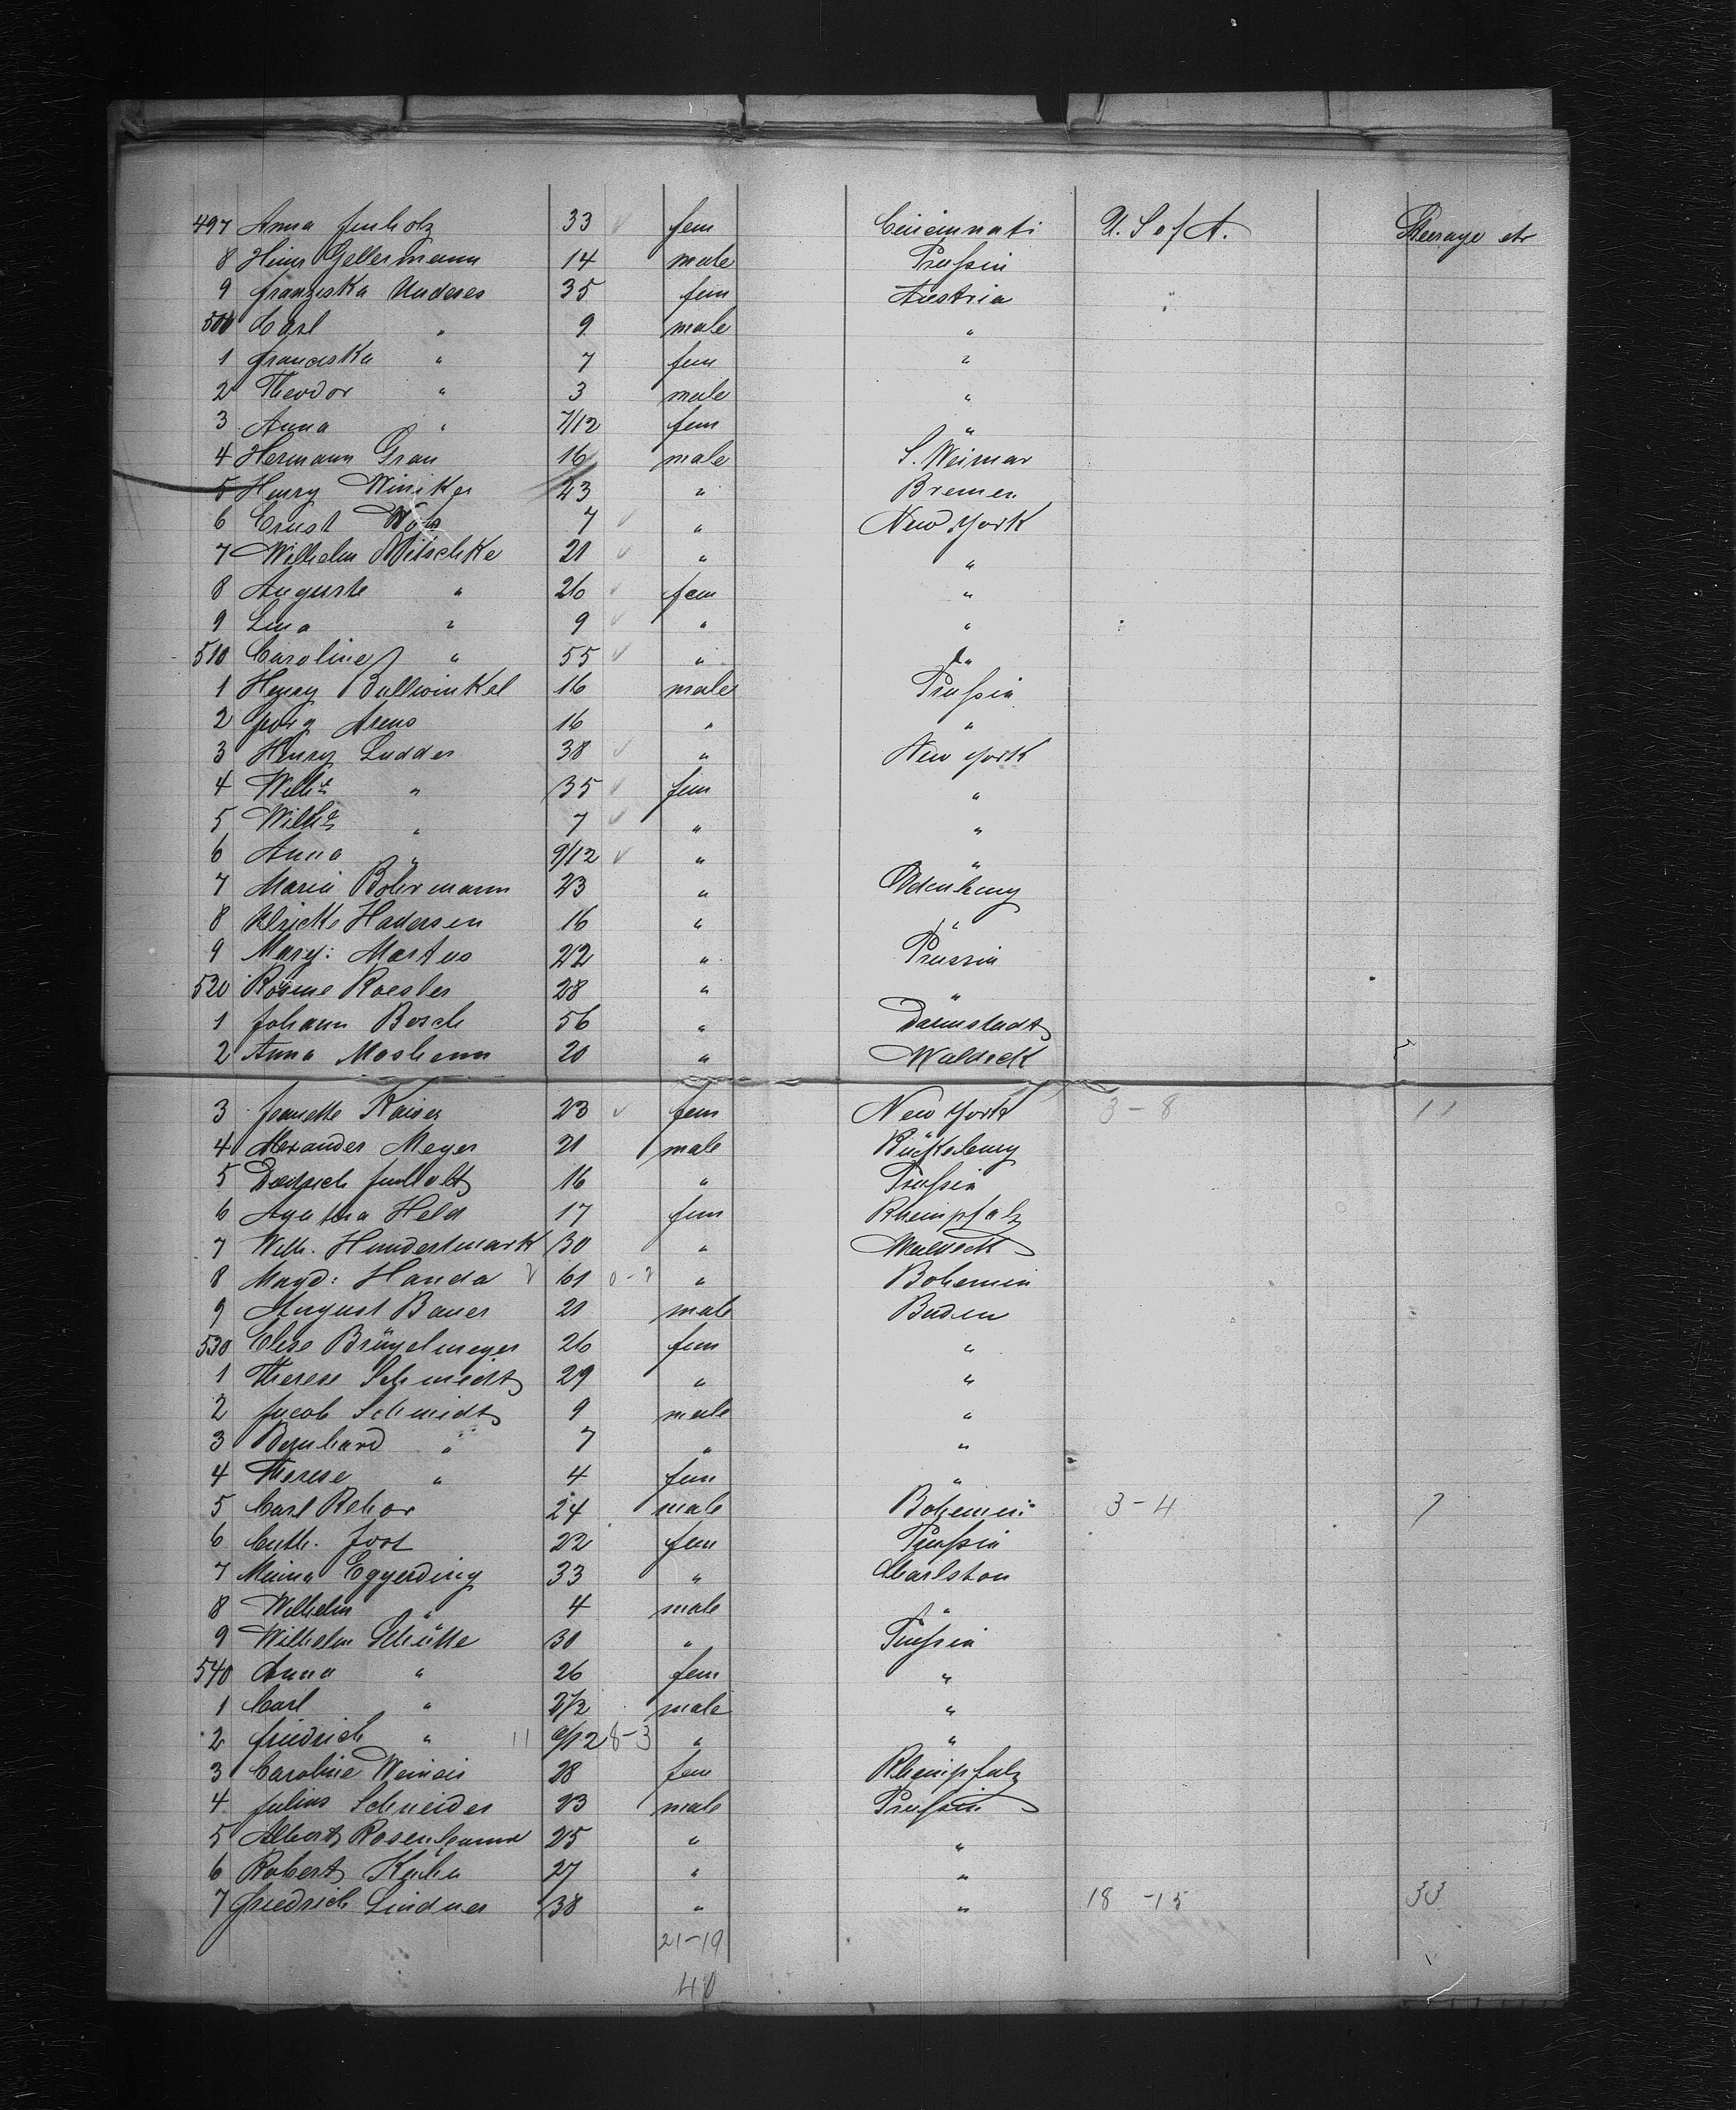 497 Anna Imholz 33 fem Cincinnati U. S of A. Steerage etr
8 Heinr Gellermann 14 male Prussia
9 Franziska Anderes 35 fem Austria
500 Carl " 9 male "
1 Franciska " 7 fem "
2 Theodor " 3 male "
3 Anna " 7/12 fem "
4 Hermann Grau 16 male S. Weimar
5 Henry Winiker 23 " Bremen
6 Ernst 7 " New York
7 Wilhelm Mitschke 21 " "
8 Auguste " 26 fem "
9 Lina " 9 " "
510 Caroline " 55 " "
1 Henry Ballwinkel 16 male Prussia
2 Georg Arens 16 " "
3 Henry Ludder 38 " New York
4 Wilhe " 35 fem "
5 Wilhe " 7 " "
6 Anna " 9/12 " "
7 Maria Bohrmann 23 " Oldenburg
8 Hadersen 16 " "
9 Marg: Martus 22 " Prussia
520 Rosine Roesler 28 " "
1 Johann Bosch 56 " Darmstadt
2 Anna Moshann 20 " Waldeck
3 Jeanette Kaiser 23 fem New York 3-8 11
4 Alexander Meyer 21 male Bückeburg
5 Diedrich 16 " Prussia
6 Agatha Held 17 fem Rheinpfalz
7 Wilh. Hundertmark 30 " Waldeck
8 Magd: Handa 2 61 0-2 " Bohemia
9 August Bauer 21 male Baden
530 Elise Brügelmeyer 26 fem "
1 Therese Schmidt 29 " "
2 Jacob Schmidt 9 male "
3 Bernhard " 7 " "
4 Therese " 4 fem "
5 Carl Rehor 24 male Bohemia 3-4 7
6 Cath. Jost 22 fem Prussia
7 Minna Eggerding 33 " Charlston
8 Wilhelm " 4 male "
9 Wilhelm Schütte 30 " Prussia
540 Anna " 26 fem "
1 Carl " 2 1/2 male "
2 Friedrich " 11 9/12 8-3 " "
3 Caroline 28 fem Rheinpfalz
4 Julius Schneider 23 male Prussia
5 Albert Rosenbaum 25 " "
6 Robert Kuhn 27 " "
7 Friedrich Lindner 38 " " 18-15 33
21-19
40